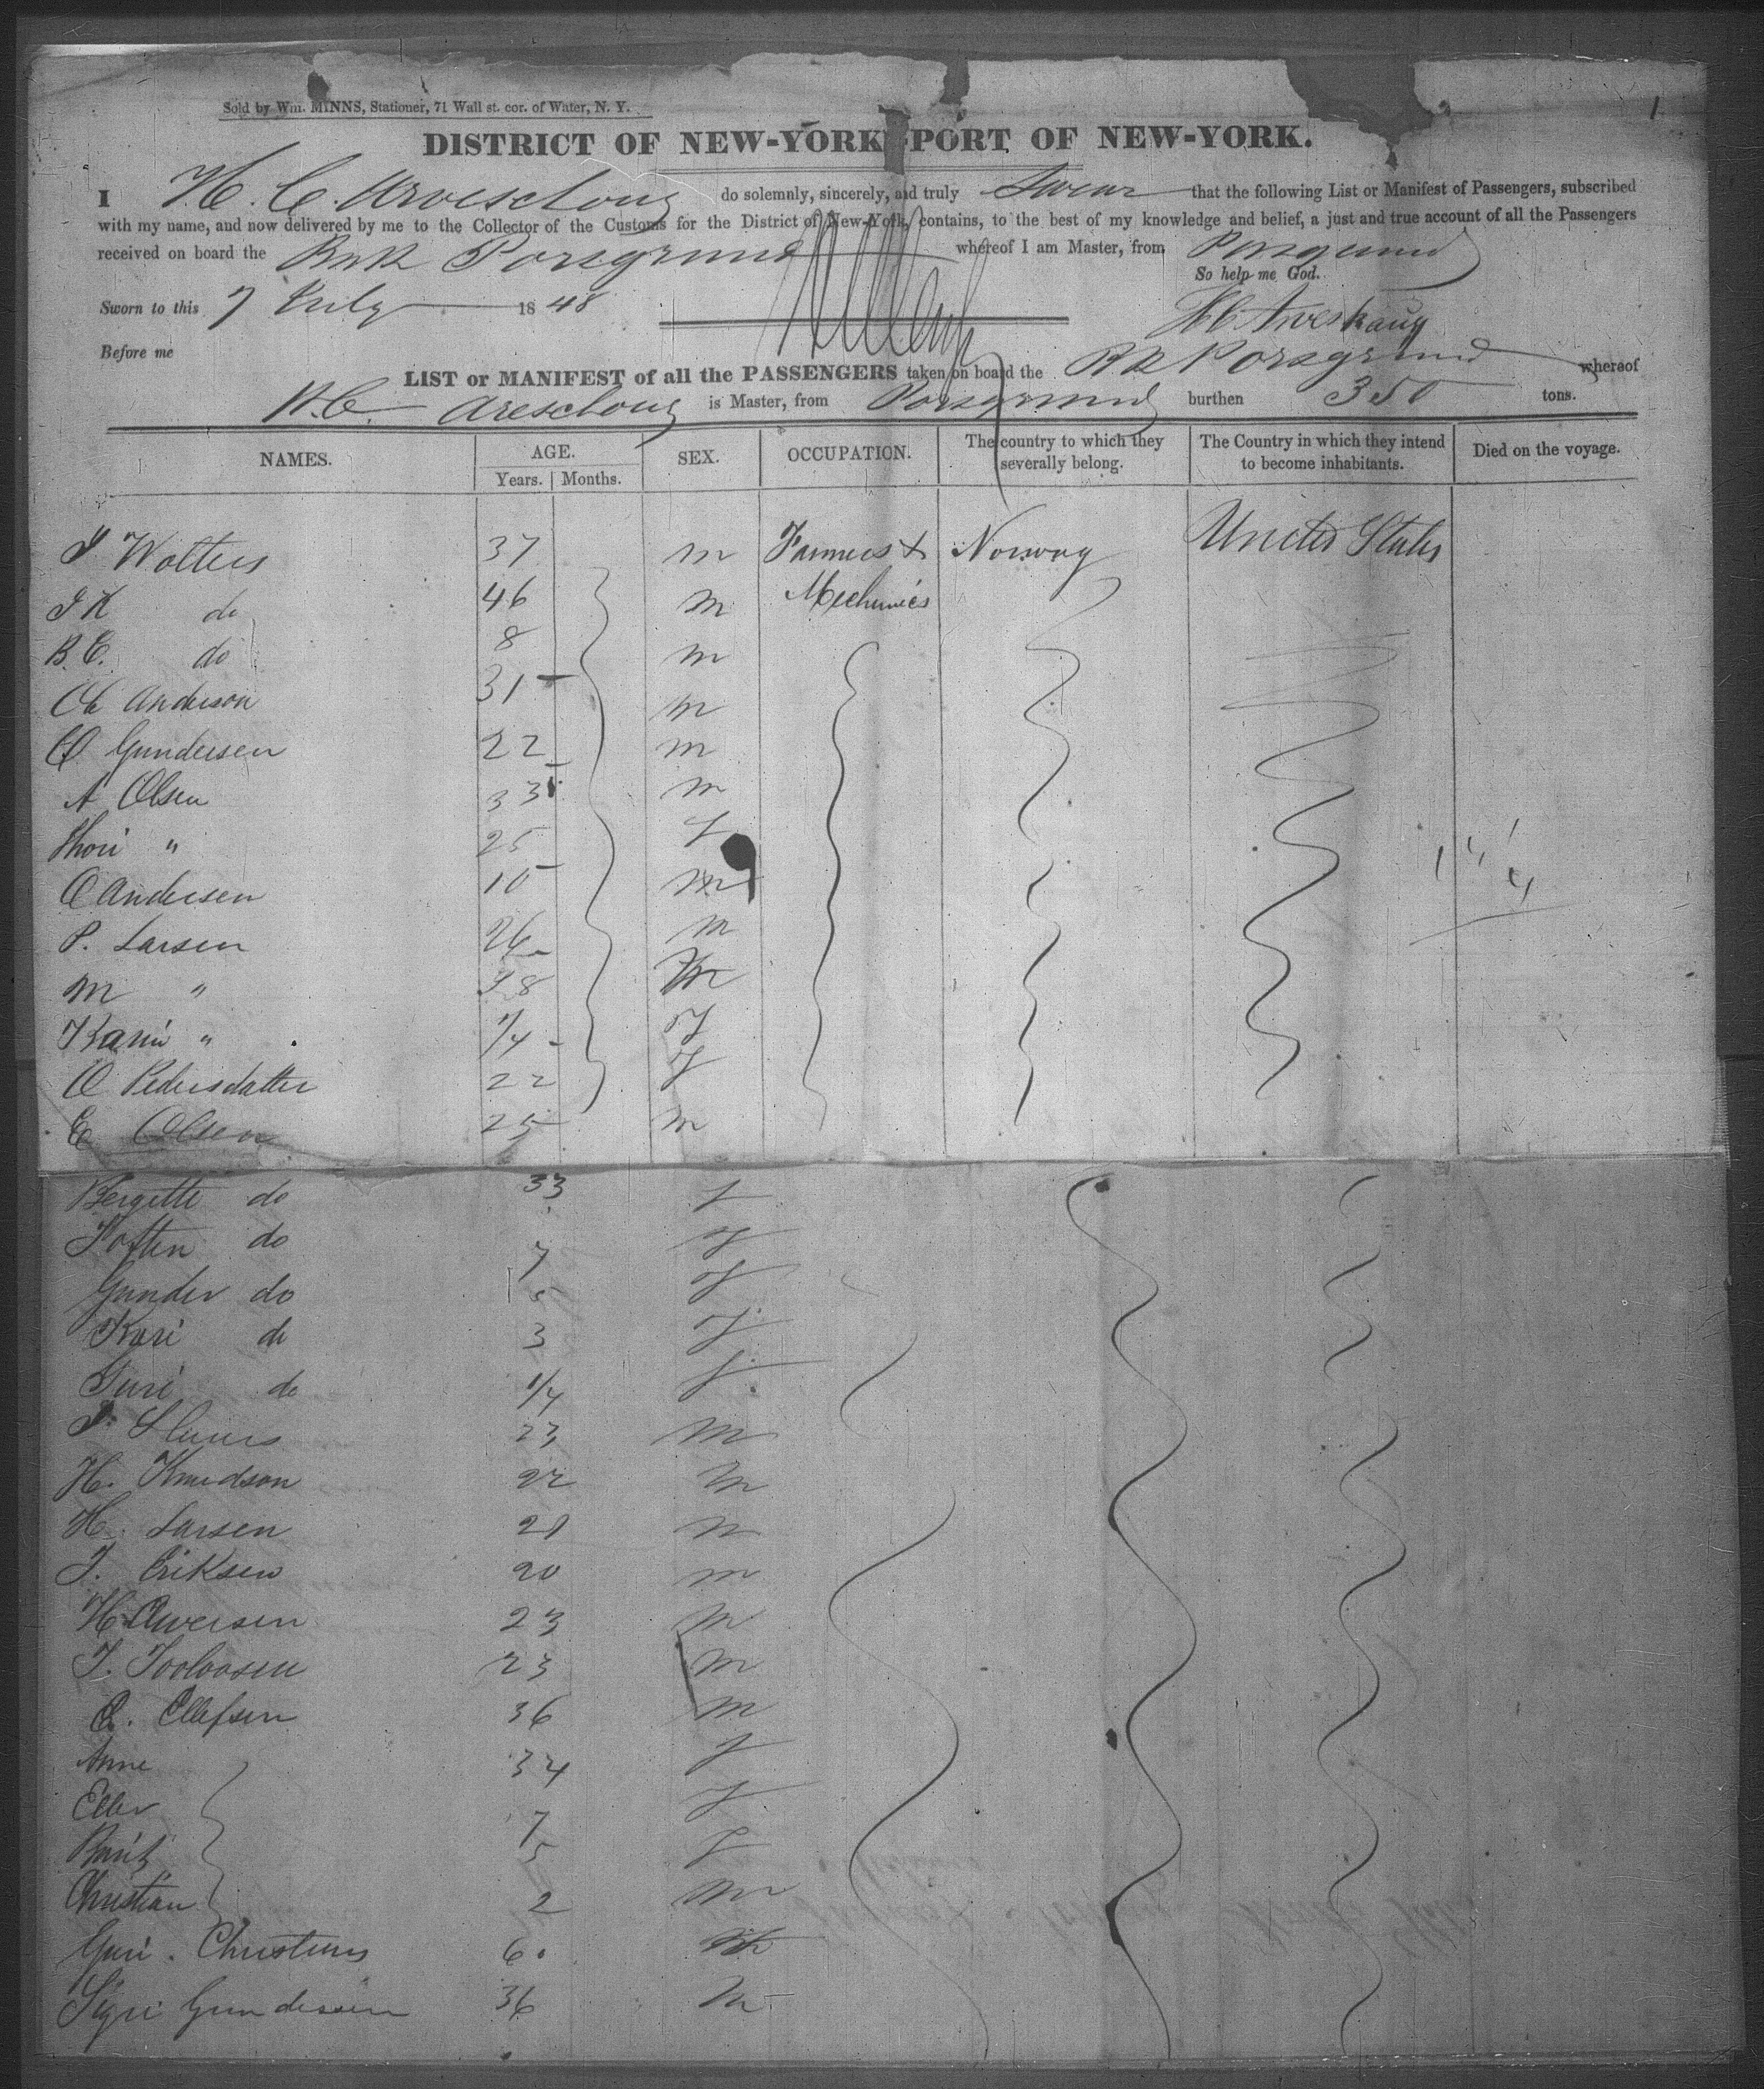 1
Sold by Wm. MINNS, Stationer, 71 Wall st. cor. of Water, N. Y.
DISTRICT OF NEW-YORK PORT OF NEW-YORK.
I H. C. do solemnly, sincerely, and truly Swear that the following List or Manifest of Passengers, subscribed
with my name, and now delivered by me to the Collector of the Customs for the District of New-York, contains, to the best of my knowledge and belief, a just and true account of all the Passengers
received on board the Bark Porsgrund whereof I am Master, from Porsgrund
So help me God.
Sworn to this 7 July 1848
Before me
LIST or MANIFEST of all the PASSENGERS taken on board the Bk Porsgrund whereof
H. C. Areschoug is Master, from Porsgrund burthen 350 tons.
NAMES. AGE. SEX. OCCUPATION. The country to which they severally belong. The Country in which they intend to become inhabitants. Died on the voyage.
Years. Months.
Wolters 37 m Farmers & Norway United States
do 46 m Mechanics
B. C. do 8 m
Anderson 31 m
Gundersen 22 m
A Olsen 33 m
Thori " 25 f
O Andersen 10 m
P. Larsen 26 m
m " 
Karin " 1/4 f
O Pedersdatter 22 f
E Olsen 25 m
Bergitte do 33 f
do 7 f
Gunder do 5 f
Kari do 3 f
Guri do 1/4 f
23 m
H. Knudson 22 m
H. Larsen 21 m
T. Eriksen 20 m
H 23 m
23 m
O. Ellefsen 36 m
Anne 34 f
Ellev 7 f
5 f
Christian 2 m
Guri Christens 60
Sigri Gundersen 36 m